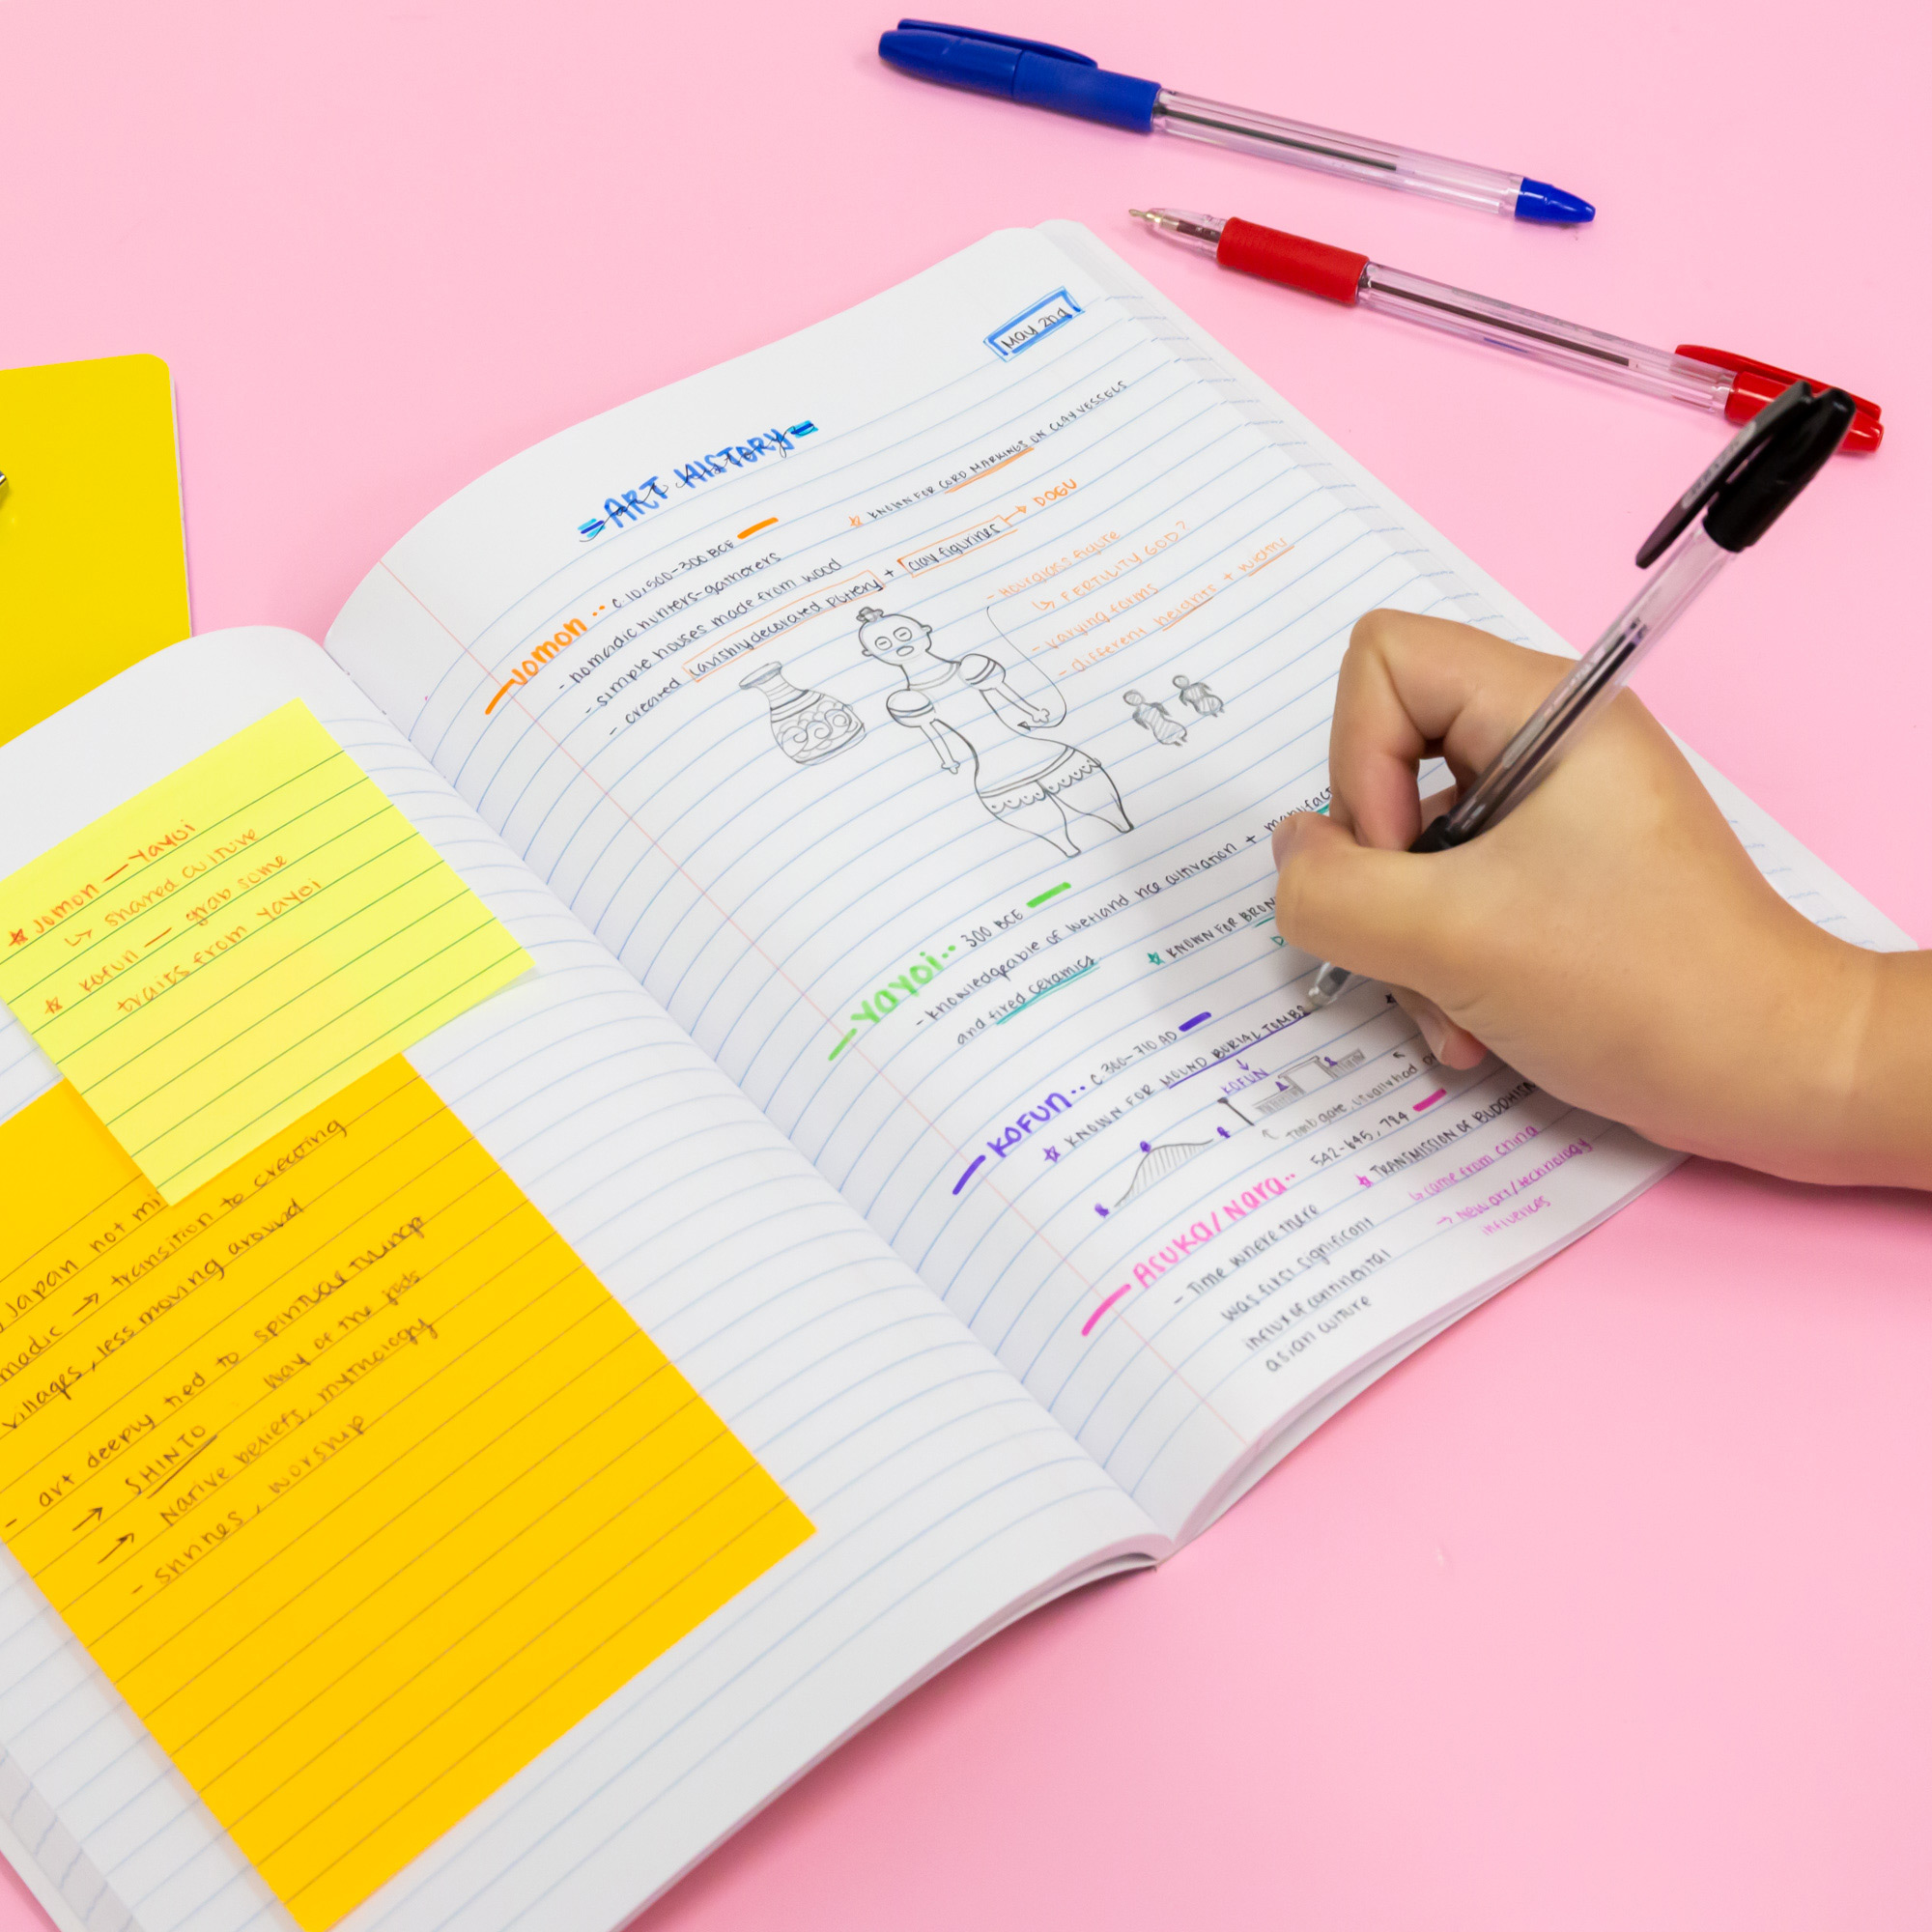 ★ Jomon — Yayoi
↳ shared culture
★ Kofun — grab some
traits from Yayoi
Japan not mi
madic → transition to creating
villages, less moving around
- art deeply tied to spiritual things
→ SHINTO way of the gods
→ Native beliefs, mythology
- shrines, worship
May 2nd
ART HISTORY
Jomon.. c.10,500-300 BCE
★ KNOWN FOR CORD MARKINGS ON CLAY VESSELS
- nomadic hunters-gatherers
- simple houses made from wood
- created lavishly decorated pottery + clay figurines → DOGU
- Hourglass figure
↳ FERTILITY GOD?
- varying forms
- different heights + width
Yayoi.. 300 BCE
- knowledgeable of wetland rice cultivation +
and fired ceramics
★ KNOWN FOR BRON
KOFUN.. c.300-710 AD
★ KNOWN FOR MOUND BURIAL TOMBS
↓
KOFUN
Tomb gate, usually had
Asuka/Nara.. 542-645, 784
★ TRANSMISSION OF BUDDHISM
↳ came from China
→ new art/technology
influences
- Time where there
was first significant
influx of continental
asian culture